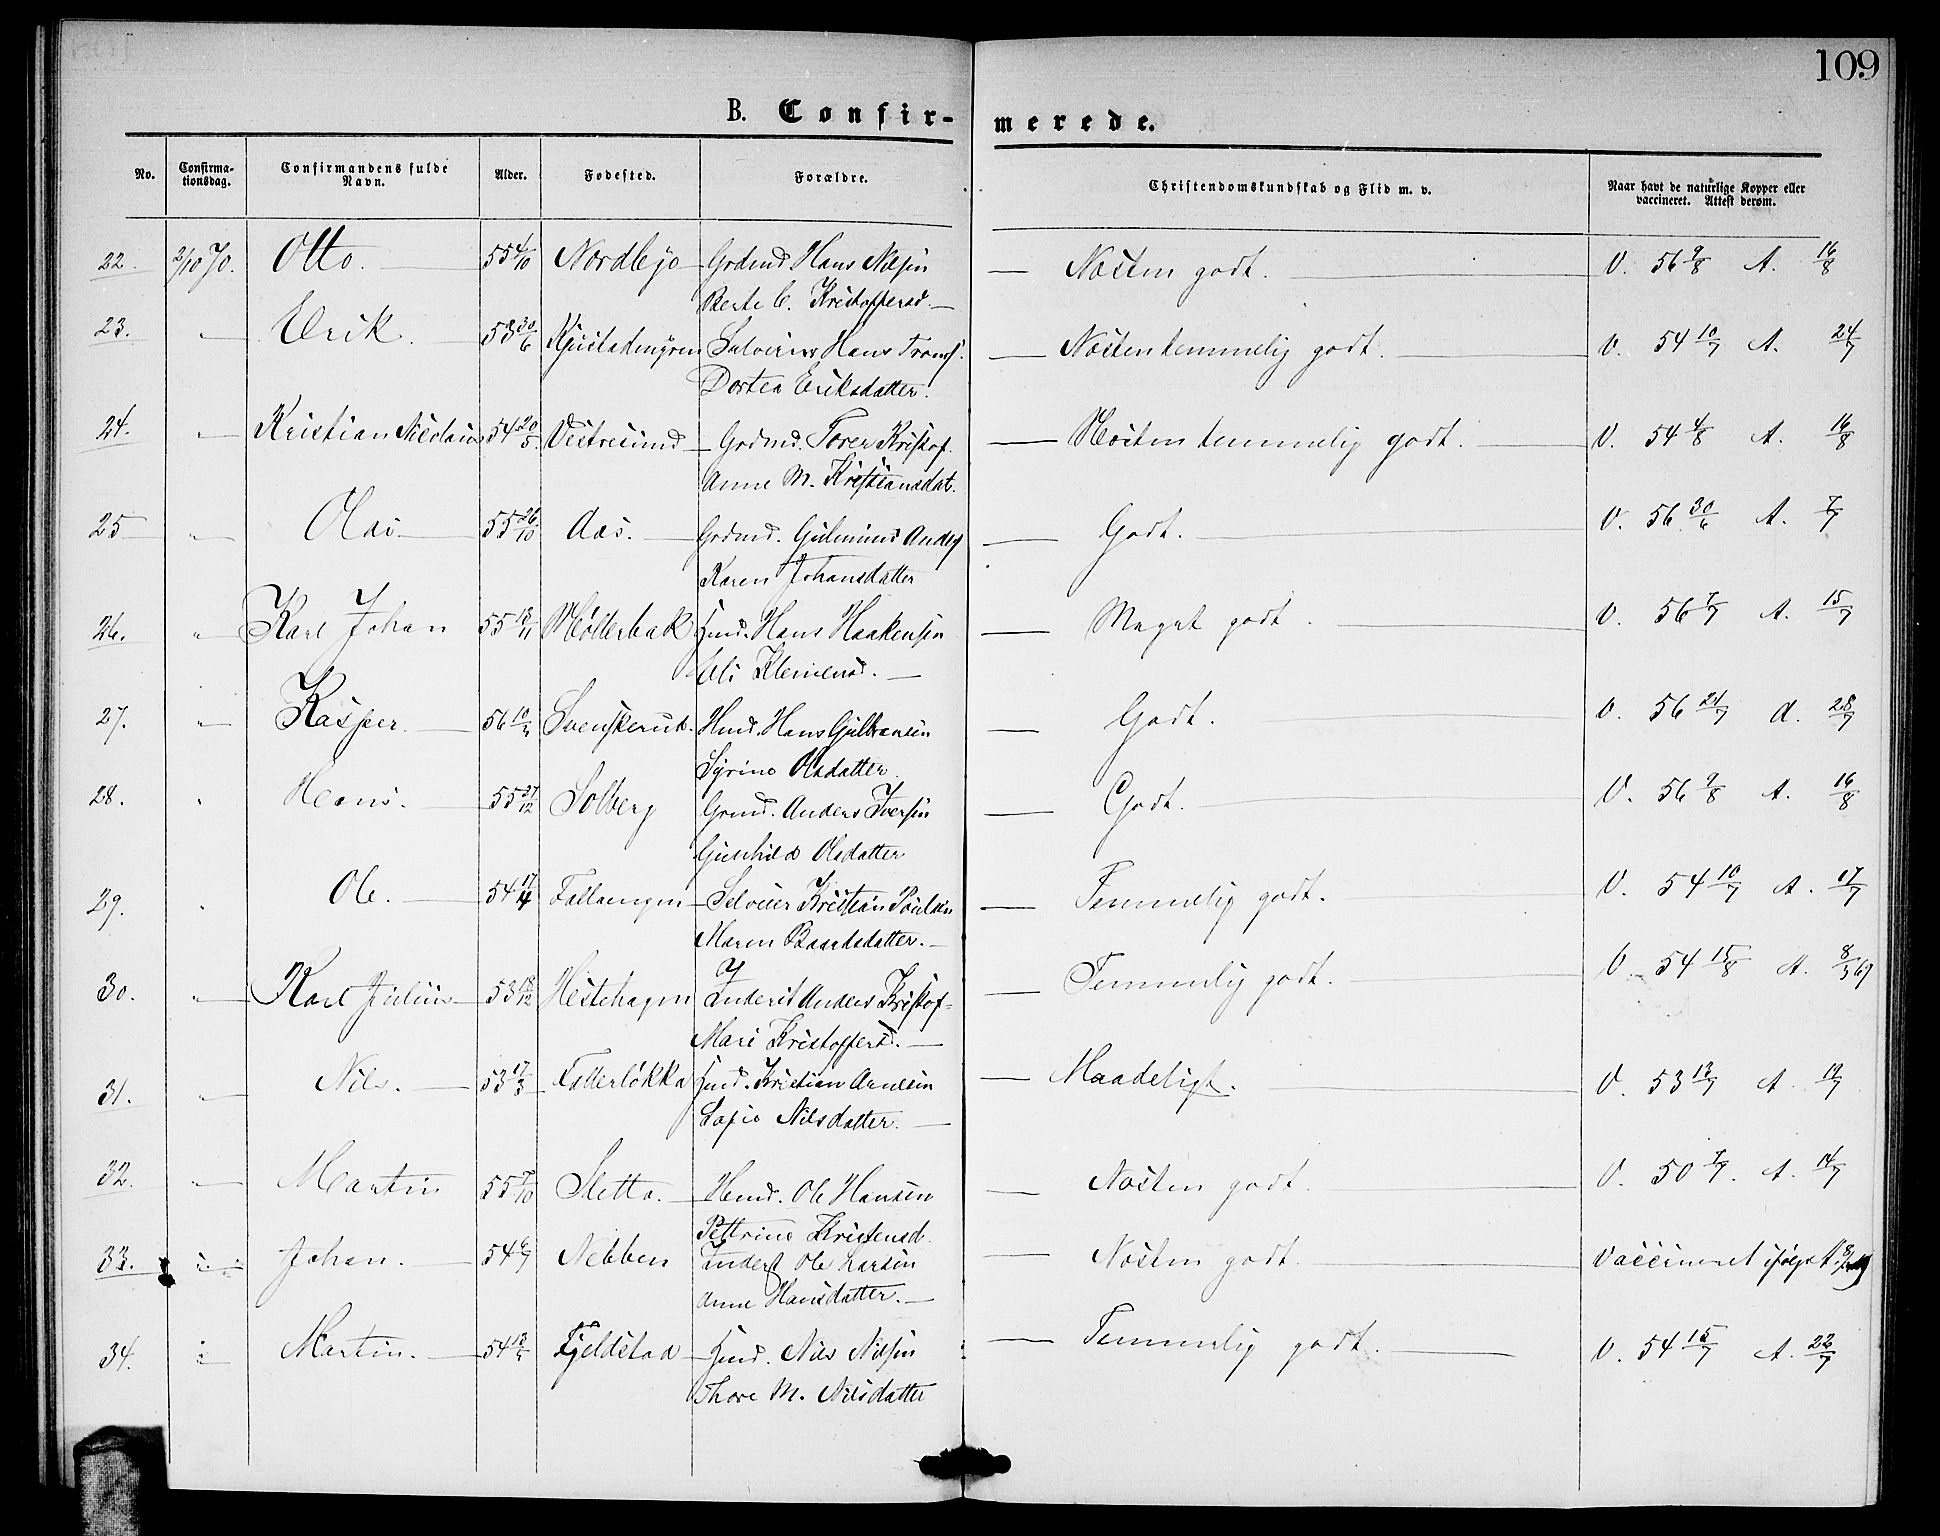 109
B. Confir- merede.
No. Confirma-tionsdag. Confirmandens fulde Navn. Alder. Fødested. Forældre. Christendomskundskab og Flid m. v. Naar havt de naturlige Kopper eller vaccineret. Attest derom.
22. 2/10 70. Otto. 55 4/10 Nordbye Grdmd Hans Nilsen Næsten godt. V. 56 9/8 A. 16/8
Berte C. Kristoffersd.
23. " Erik. 53 30/6 Selveier Hans Næsten temmelig godt. V. 54 10/7 A. 24/7
Dortea Eriksdatter.
24. " Kristian Nicolai 54 20/5 Vestresund Grdmd. Toren Kristof. Næsten temmelig godt. V. 54 4/8 A. 16/8
Anne M. Kristiansdat.
25 " Olai 55 26/10 Aas. Grdmd. Gulmund Anders Godt. V. 56 30/6 A. 7/7
Karen Johansdatter
26. " Karl Johan 55 13/11 Møllerbak Hmd. Hans Haakensen Meget godt. V. 56 7/7 A. 15/7
Eli Klemensd.
27. " Kasper. 56 Svenskerud. Hmd. Hans Gulbransen Godt. V. 56 24/7 A. 28/7
Syrine Olsdatter.
28. " Hans. 55 27/12 Solberg Grmd. Anders Iversen Godt. V. 56 9/8 A. 16/8
Gunhild Olsdatter
29. " Ole. 54 17/4 Fallaengen Selveier Kristian Poulsen Temmelig godt. V. 54 10/7 A. 17/7
Maren Baardsdatter.
30. " Karl Julius 53 18/12 Hestehagen Inderst Anders Kristof- Temmelig godt. V. 54 15/8 A. 8/3 69
Mari Kristoffersd.
31. " Nils. 53 17/3 Fallerløkka Hmd. Kristian Arnesen Maadeligt. V. 53 13/7 A. 19/7
Sofie Nilsdatter.
32. " Martin 55 7/10 Sletta. Hmd. Ole Hansen Næsten godt. V. 50 7/7. A. 14/7
Pettrine Kristensd.
33. " Johan. 54 6/7 Nebben Inderst Ole Larsen Næsten godt. Vaccineret ifølge A.
Anne Hansdatter.
34. " Martin. 54 Fjeldstad Hmd. Nils Nilsen Temmelig godt. V. 54 15/7 A. 22/7
Thore M. Nilsdatter